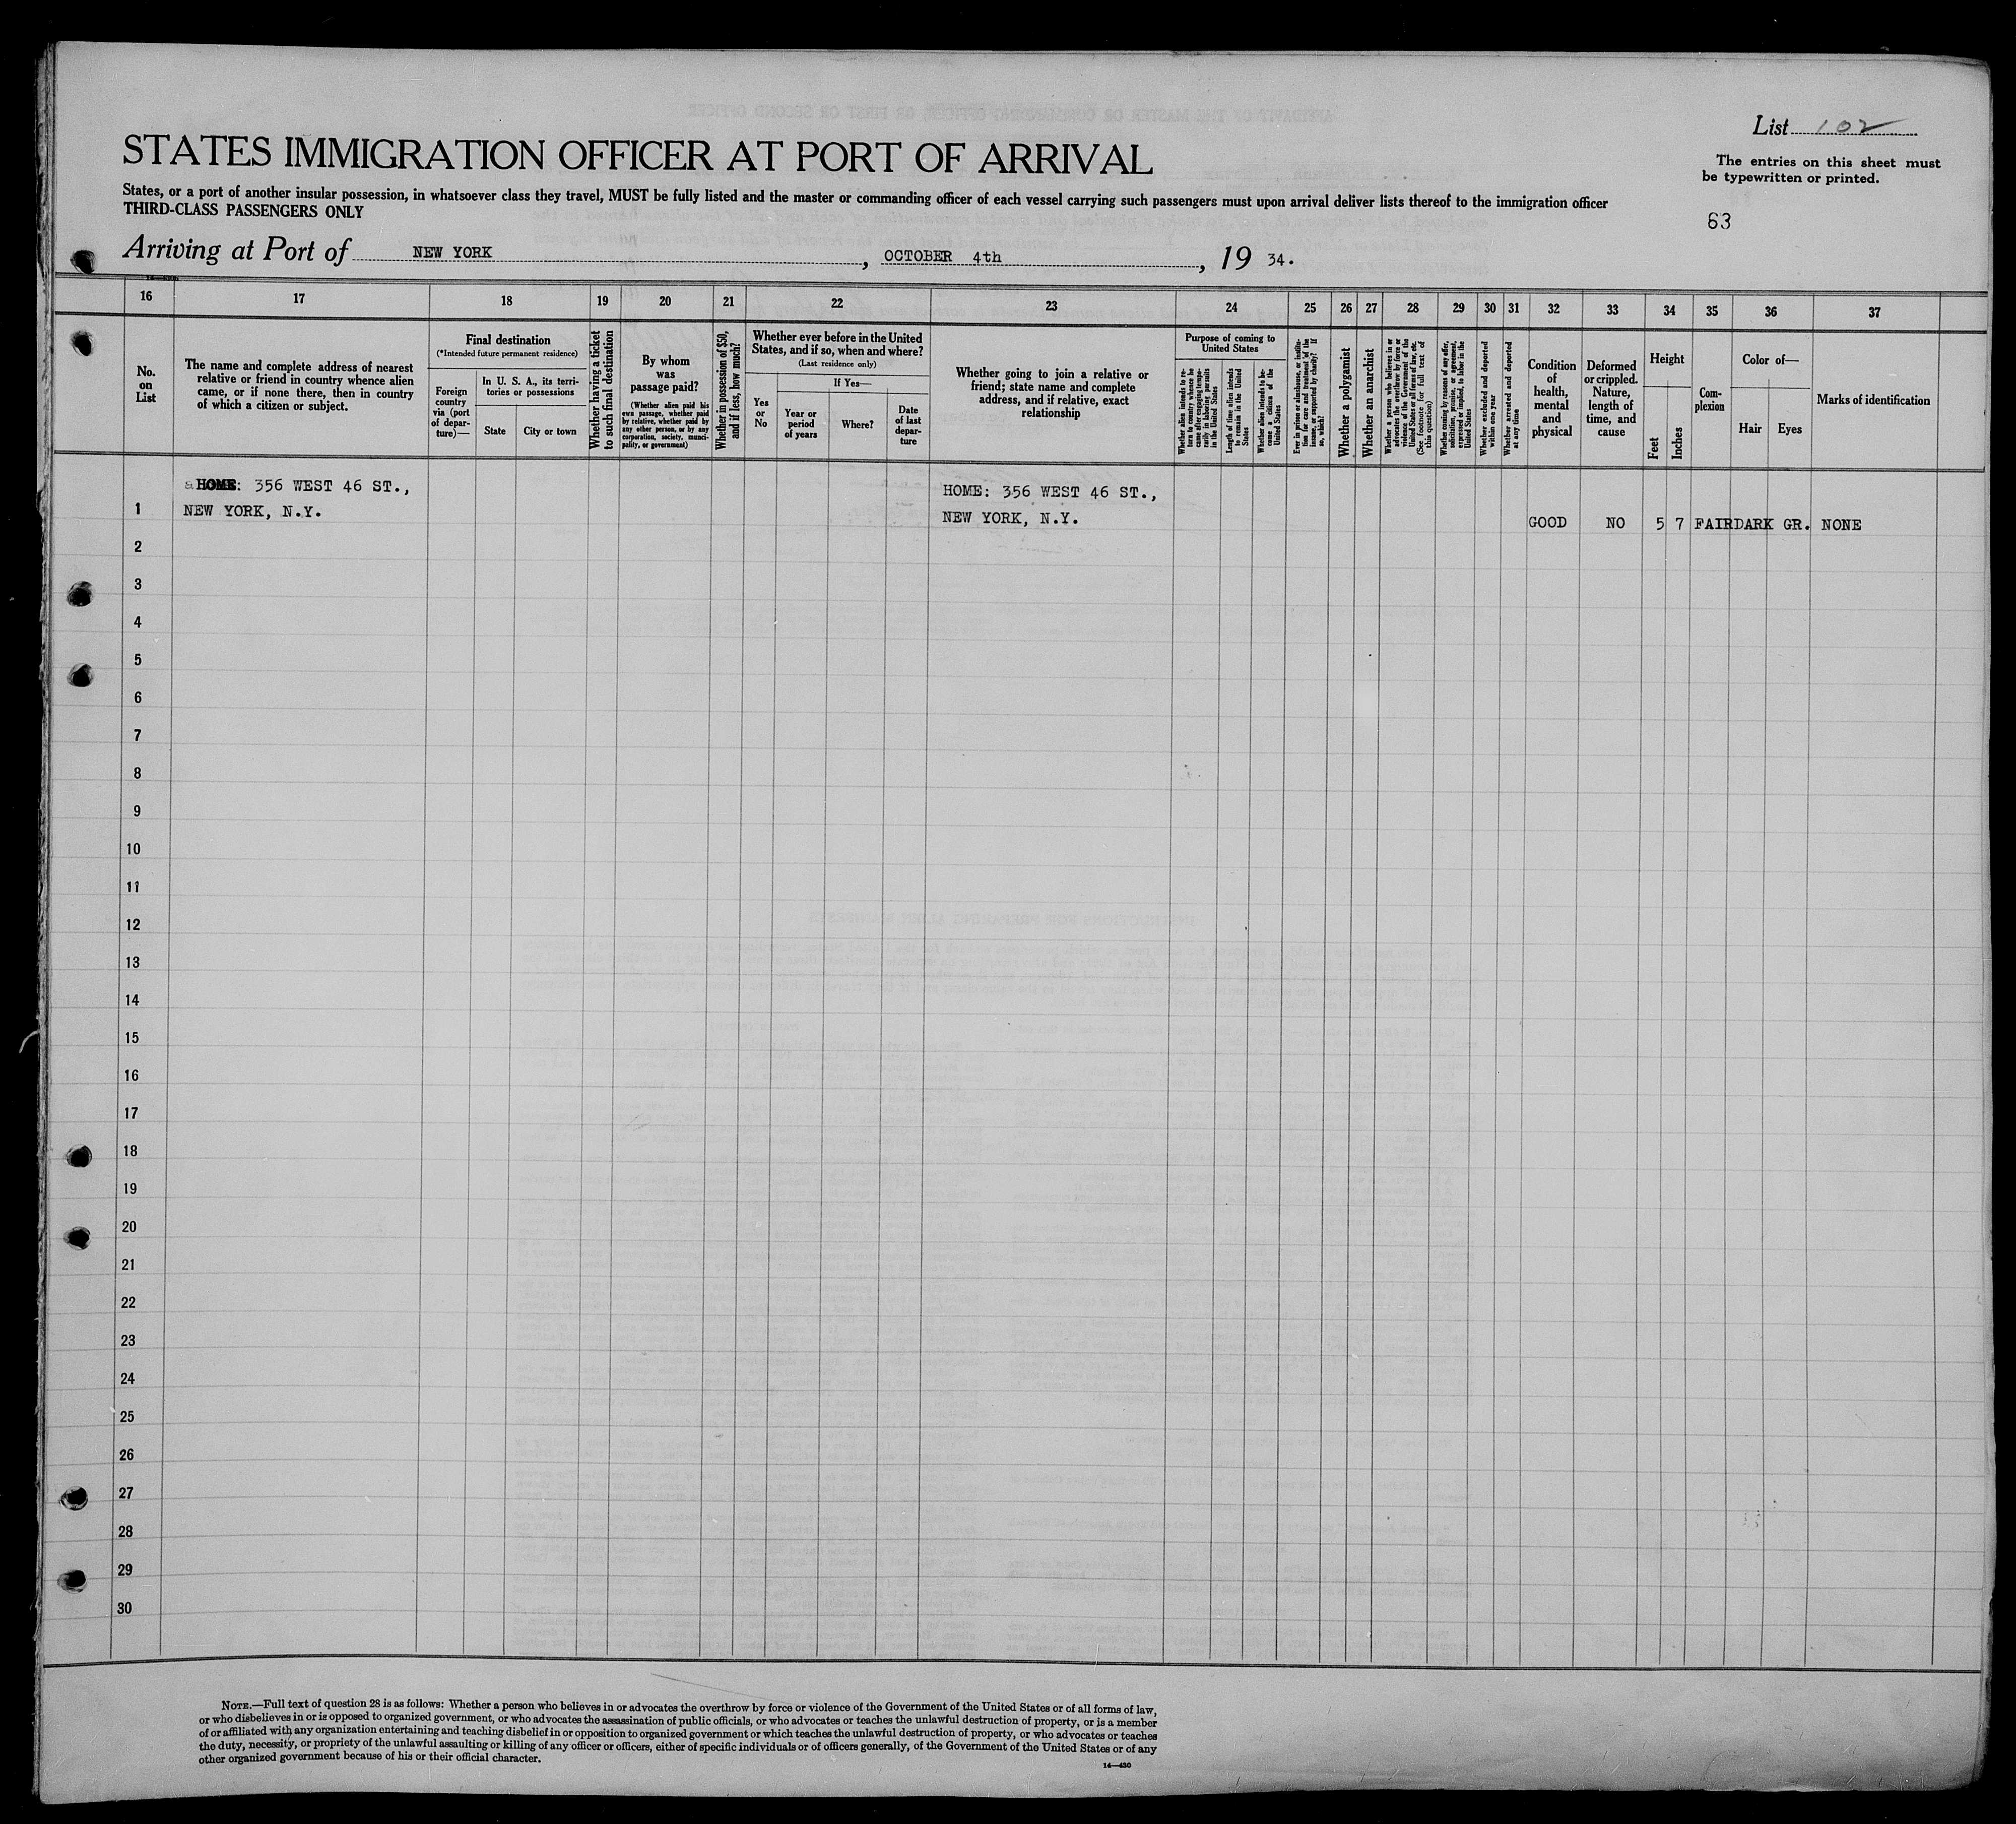 List 102
STATES IMMIGRATION OFFICER AT PORT OF ARRIVAL
The entries on this sheet must
be typewritten or printed.
States, or a port of another insular possession, in whatsoever class they travel, MUST be fully listed and the master or commanding officer of each vessel carrying such passengers must upon arrival deliver lists thereof to the immigration officer
THIRD-CLASS PASSENGERS ONLY
63
Arriving at Port of NEW YORK, OCTOBER 4th, 19 34.
16 17 18 19 20 21 22 23 24 25 26 27 28 29 30 31 32 33 34 35 36 37
No.
on
List
The name and complete address of nearest
relative or friend in country whence alien
came, or if none there, then in country
of which a citizen or subject.
Final destination
(*Intended future permanent residence)
Foreign
country
via (port
of depar-
ture)—
In U. S. A., its terri-
tories or possessions
State
City or town
Whether having a ticket
to such final destination
By whom
was
passage paid?
(Whether alien paid his
own passage, whether paid
by relative, whether paid by
any other person, or by any
corporation, society, munici-
pality, or government)
Whether in possession of $50,
and if less, how much?
Whether ever before in the United
States, and if so, when and where?
(Last residence only)
Yes
or
No
If Yes—
Year or
period
of years
Where?
Date
of last
depar-
ture
Whether going to join a relative or
friend; state name and complete
address, and if relative, exact
relationship
Purpose of coming to
United States
Whether alien intends to re-
turn to country whence he
came after engaging tempo-
rarily in laboring pursuits
in the United States
Length of time alien intends
to remain in the United
States
Whether alien intends to be-
come a citizen of the
United States
Ever in prison or almshouse, or institu-
tion for care and treatment of the
insane, or supported by charity? If
so, which?
Whether a polygamist
Whether an anarchist
Whether a person who believes in or
advocates the overthrow by force or
violence of the Government of the
United States or all forms of law, etc.
(See footnote for full text of
this question)
Whether coming by reasons of any offer,
solicitation, promise, or agreement,
expressed or implied, to labor in the
United States
Whether excluded and deported
within one year
Whether arrested and deported
at any time
Condition
of
health,
mental
and
physical
Deformed
or crippled.
Nature,
length of
time, and
cause
Height
Feet
Inches
Com-
plexion
Color of—
Hair
Eyes
Marks of identification
HOME: 356 WEST 46 ST.,
NEW YORK, N.Y.
HOME: 356 WEST 46 ST.,
NEW YORK, N.Y.
1 GOOD NO 5 7 FAIR DARK GR. NONE
2
3
4
5
6
7
8
9
10
11
12
13
14
15
16
17
18
19
20
21
22
23
24
25
26
27
28
29
30
NOTE.—Full text of question 28 is as follows: Whether a person who believes in or advocates the overthrow by force or violence of the Government of the United States or of all forms of law,
or who disbelieves in or is opposed to organized government, or who advocates the assassination of public officials, or who advocates or teaches the unlawful destruction of property, or is a member
of or affiliated with any organization entertaining and teaching disbelief in or opposition to organized government or which teaches the unlawful destruction of property, or who advocates or teaches
the duty, necessity, or propriety of the unlawful assaulting or killing of any officer or officers, either of specific individuals or of officers generally, of the Government of the United States or of any
other organized government because of his or their official character.
14—430